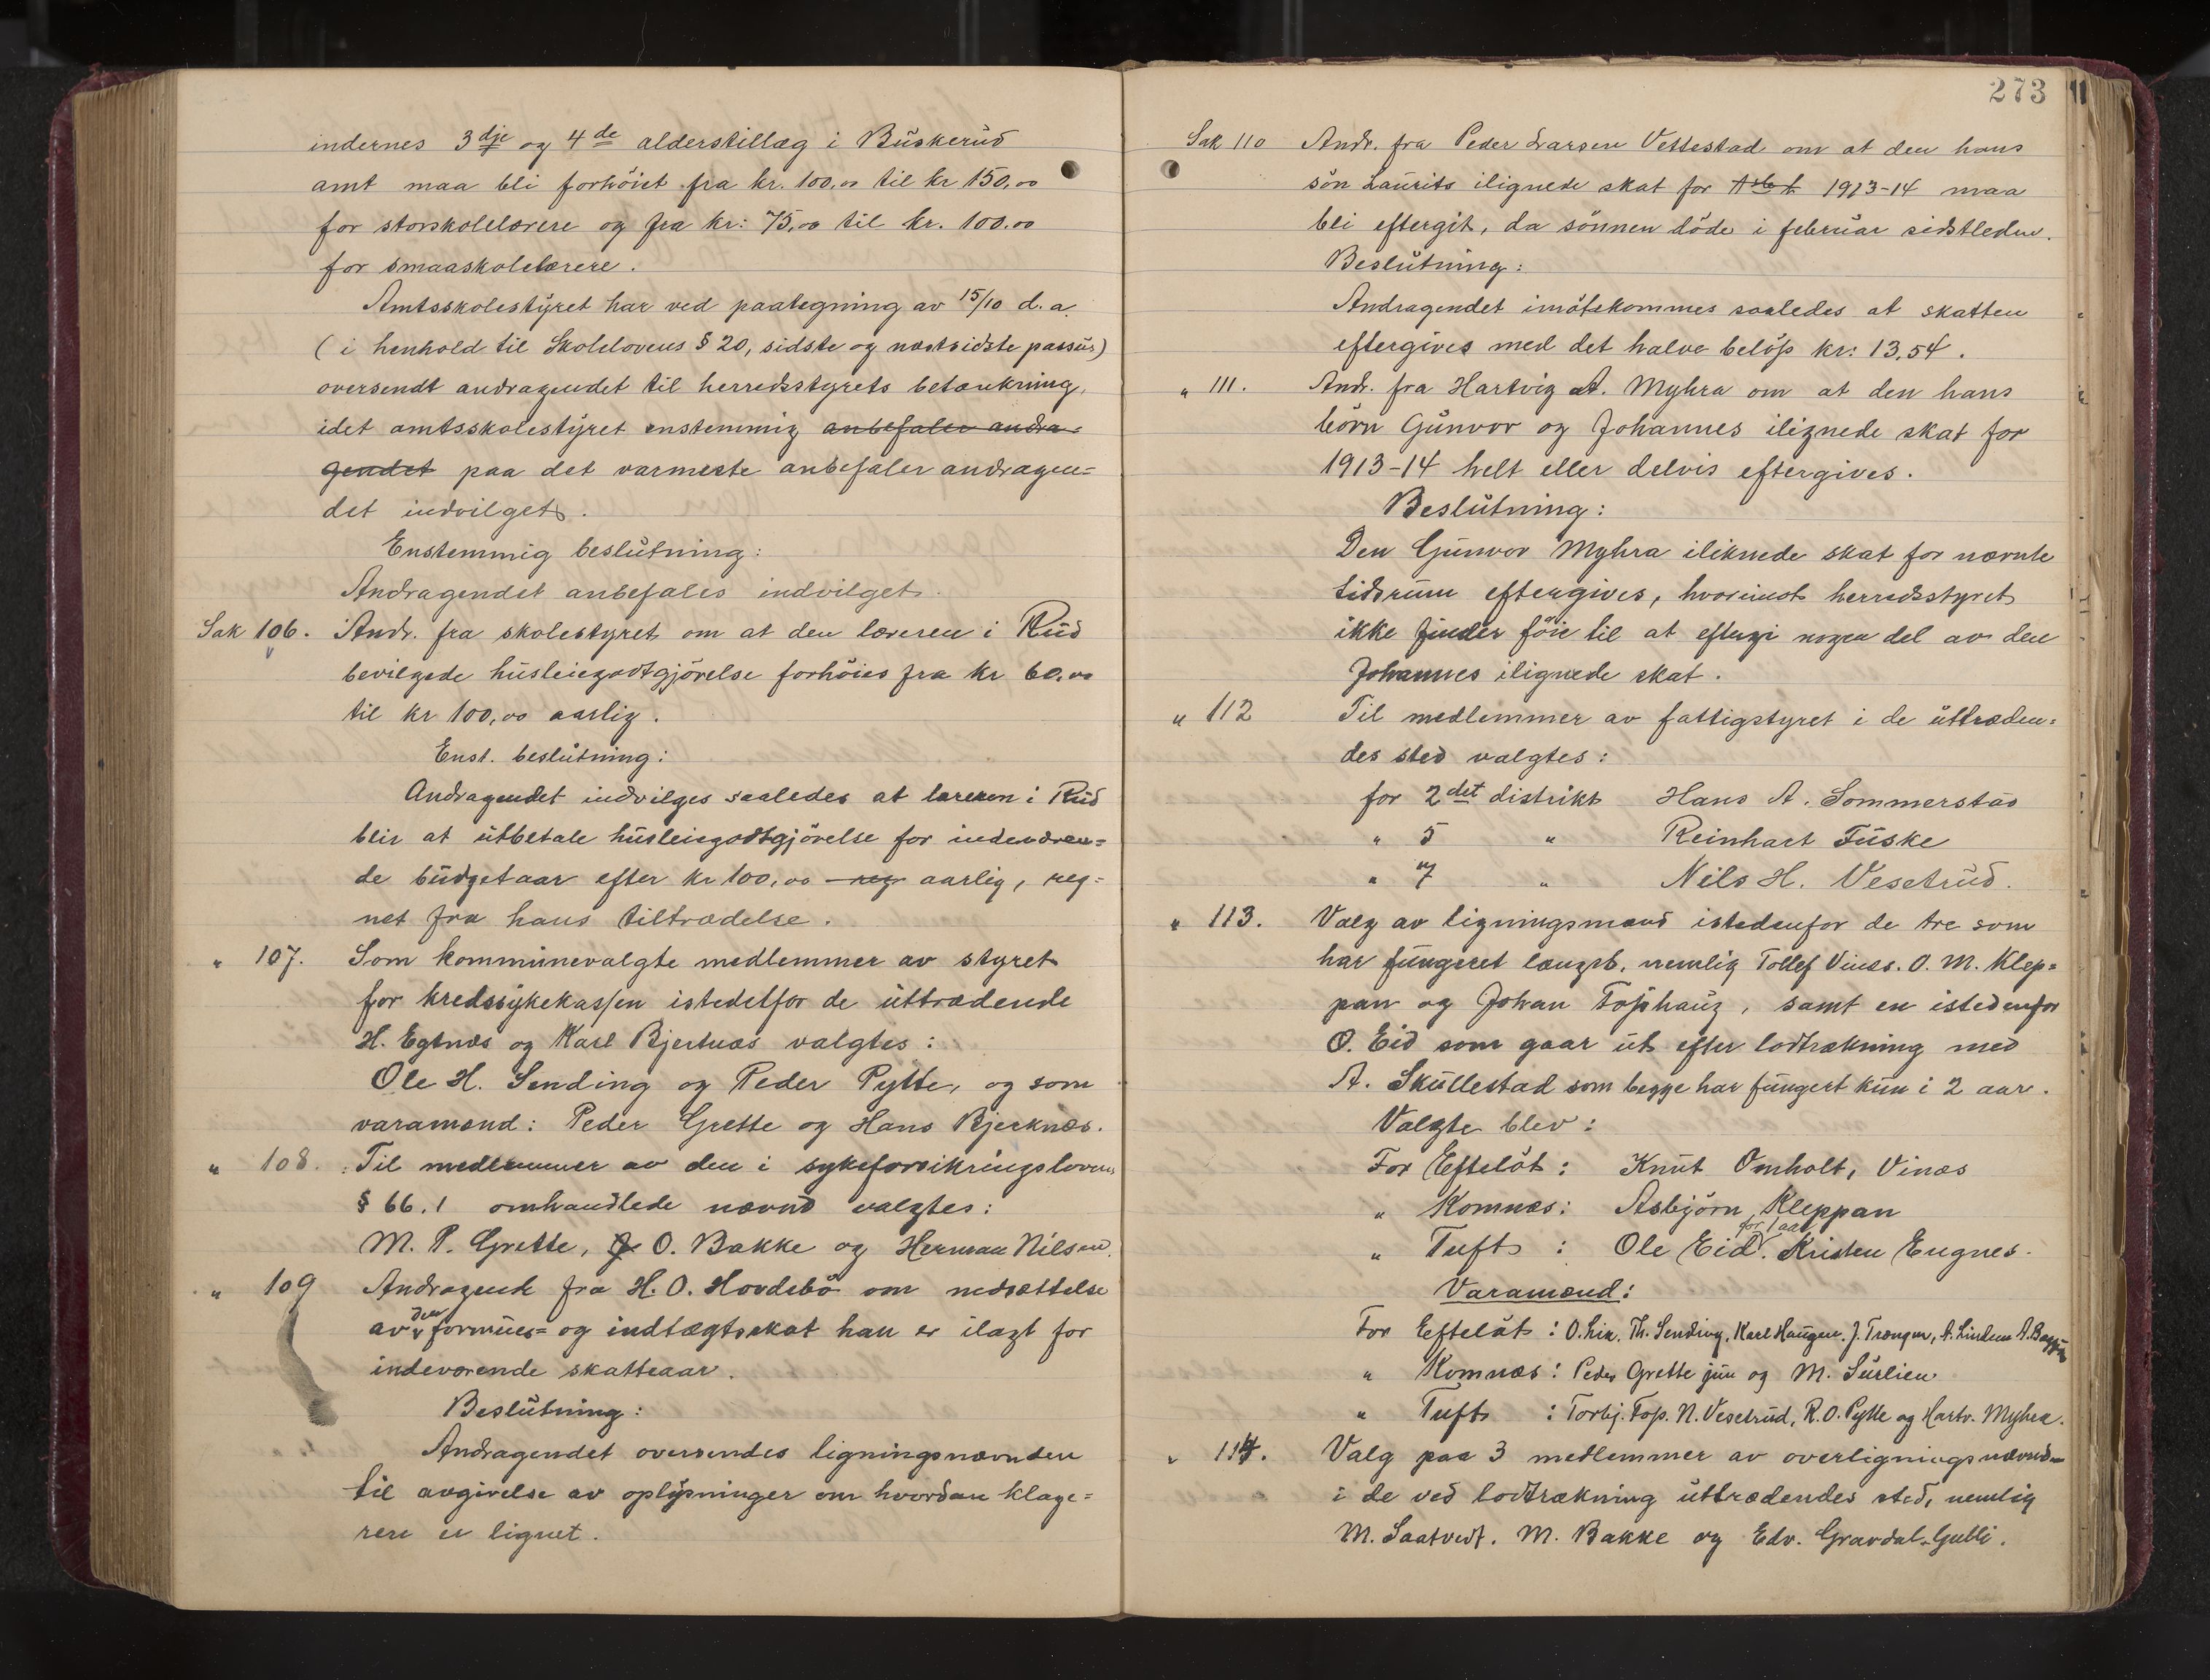 indernes 3dje og 4de alderstillæg i Buskerud
amt maa bli forhöiet fra kr. 100,00 til kr 150,00
for storskolelærere og fra kr: 75,00 til kr. 100.00
for smaaskolelærere.
Amtsskolestyret har ved paategning av 15/10 d. a.
(i henhold til Skolelovens § 20, sidste og næstsidste passus)
oversendt andragendet til herredsstyrets betænkning,
idet amtsskolestyret enstemmig anbefaler andra-
gendet paa det varmeste anbefaler andragen=
det indvilget.
Enstemmig beslutning:
Andragendet anbefales indvilget.
Sak 106. Andr. fra skolestyret om at den læreren i Rud
bevilgede husleiegodtgjörelse forhöies fra kr 60,00
til kr 100,00 aarlig.
Enst. beslutning:
Andragendet indvilges saaledes at læreren i Rud
blir at utbetale husleiegodtgjörelse for indeværen=
de budgetaar efter kr 100,00 reg aarlig, reg=
net fra hans tiltrædelse.
" 107. Som kommunevalgte medlemmer av styret
for kredssykekassen istedetfor de uttrædende
H. Egtnæs og Karl Bjertnæs valgtes:
Ole H. Sending og Peder Pytte, og som
varamænd: Peder Grette og Hans Bjerknæs.
" 108. Til medlemmer av den i sykeforsikringslovens
§ 66.1 omhandlede nævnd valgtes:
M. P. Grette, O. Bakke og Herman Nilsen.
" 109 Andragende fra H. O. Hovdebö om nedsættelse
av den formues= og indtægtsskat han er ilagt for
indeværende skatteaar.
Beslutning:
Andragendet oversendes ligningsnævnden
til avgivelse av oplysninger om hvordan klage=
ren er lignet.
273
Sak 110 Andr. fra Peder Larsen Vettestad om at den hans
sön Laurits ilignede skat for 1913-14 maa
bli eftergit, da sönnen döde i februar sidstleden.
Beslutning:
Andragendet imötekommes saaledes at skatten
eftergives med det halve belöp kr: 13,54.
" 111. Andr. fra Hartvig A. Myhra om at den hans
börn Gunvor og Johannes ilignede skat for
1913-14 helt eller delvis eftergives.
Beslutning:
Den Gunvor Myhra iliknede skat for nævnte
tidsrum eftergives, hvorimot herredsstyret
ikke finder föie til at eftergi nogen del av den
Johannes ilignede skat.
" 112 Til medlemmer av fattigstyret i de uttræden=
des sted valgtes:
for 2det distrikt Hans A. Sommerstad
" 5 " Reinhart Tuske
" 7 " Nils H. Vesetrud.
" 113. Valg av ligningsmænd istedenfor de tre som
har fungeret længst, nemlig Tollef Vinæs. O. M. Klep=
pan og Johan Fophaug, samt en istedenfor
O. Eid som gaar ut efter lodtrækning med
A. Skullestad som begge har fungert kun i 2 aar.
Valgte blev:
For Efteløt: Knut Omholt, Vinæs
" Komnæs: Asbjörn Kleppan
" Tuft: Ole Eid for 1 aar. Kristen Engnes.
Varamænd:
For Efteløt: O. Lia, Th. Sending, Karl Haugen, J. Trængen, A. Linden
" Komnæs: Peder Grette jun og M. Surlien
" Tuft: Torbj. Fop. N. Vesetrud, R. O. Pytte og Hartv. Myhra.
" 114. Valg paa 3 medlemmer av overligningsnævnd-
i de ved lodtrækning uttrædendes sted, nemlig
M. Saatvedt. M. Bakke og Edv. Gravdal-Gulli.